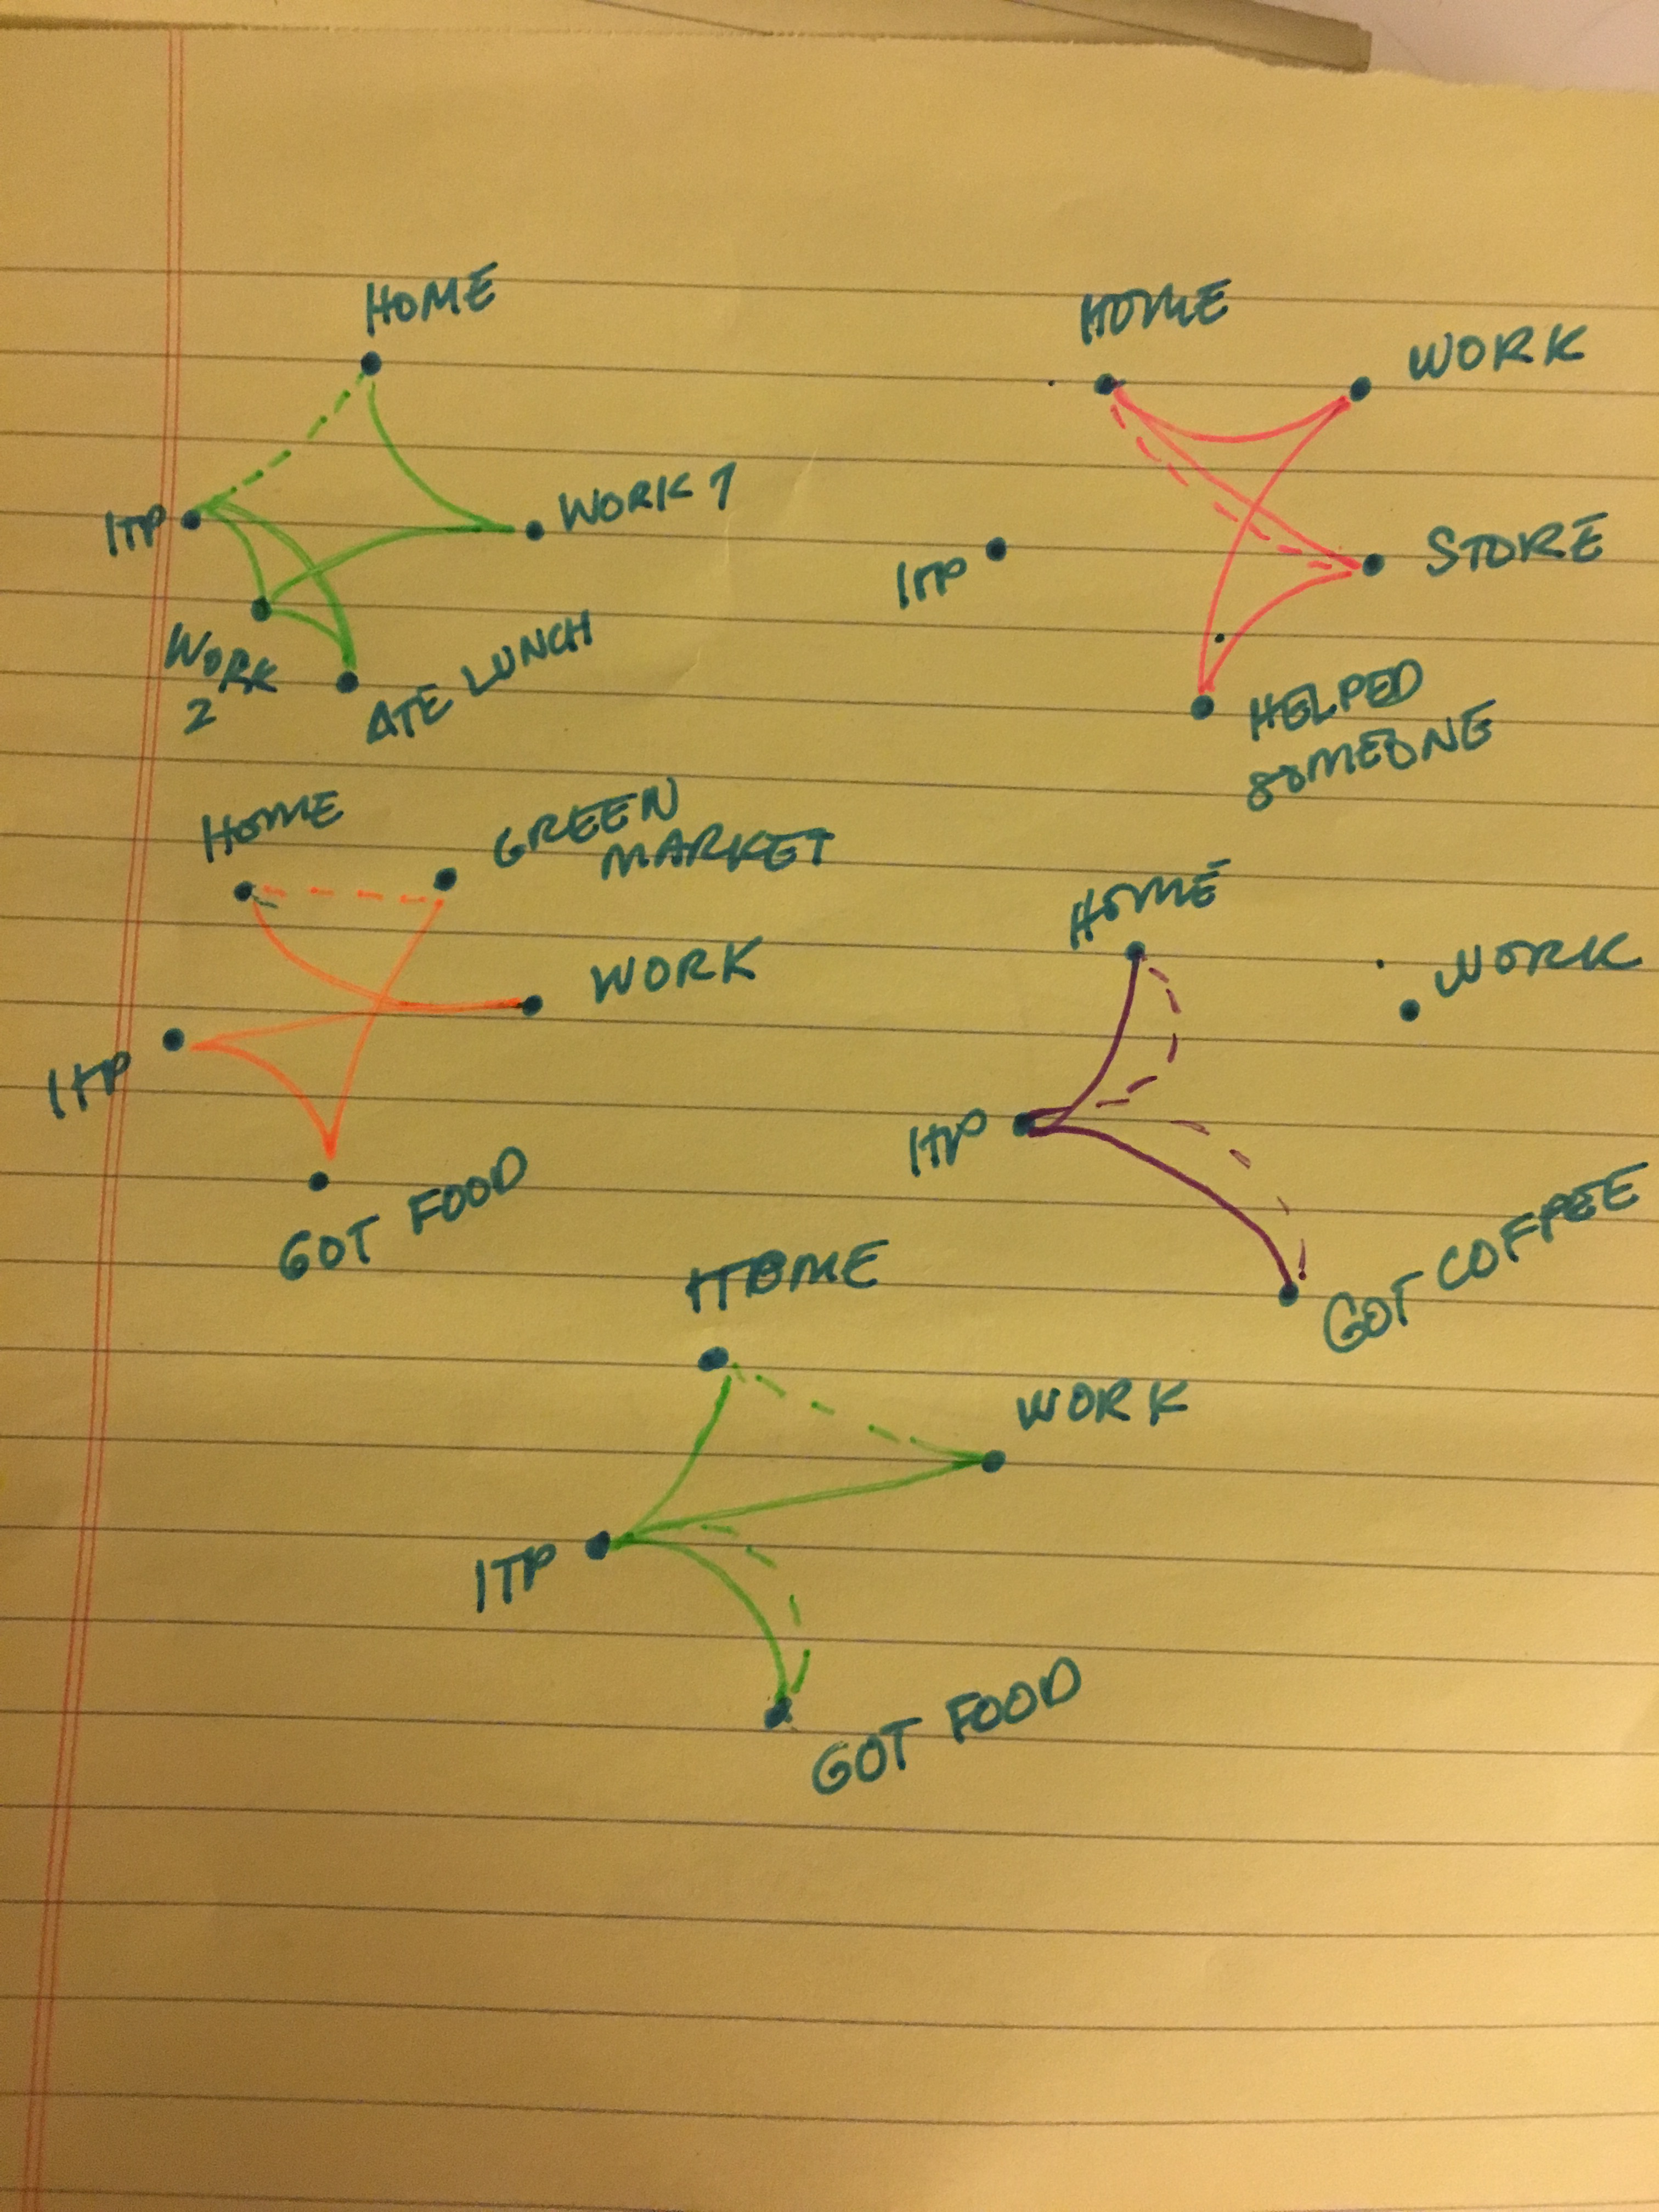 HOME
WORK 1
ITP
WORK
2
ATE LUNCH
HOME
WORK
STORE
ITP
HELPED
SOMEONE
HOME
GREEN
MARKET
WORK
ITP
GOT FOOD
HOME
WORK
ITP
GOT COFFEE
HOME
WORK
ITP
GOT FOOD